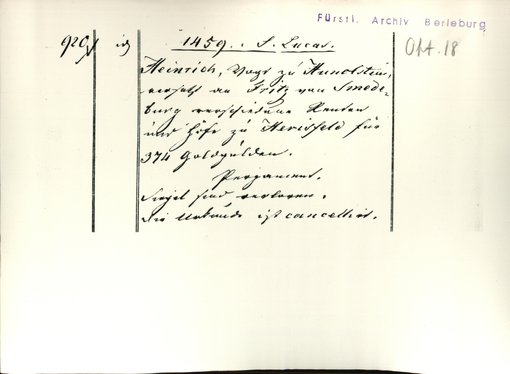 Fürstl. Archiv Berleburg
929. 1459. S. Lucas. Okt. 18
Heinrich, Vogt zu Hunolstein,
versetzt an Fritz van Smede-
burg verschiedene Renten
und Höfe zu Herisfeld für
374 Goldgulden.
Pergament.
Siegel sind verloren.
Die Urkunde ist cancellirt.